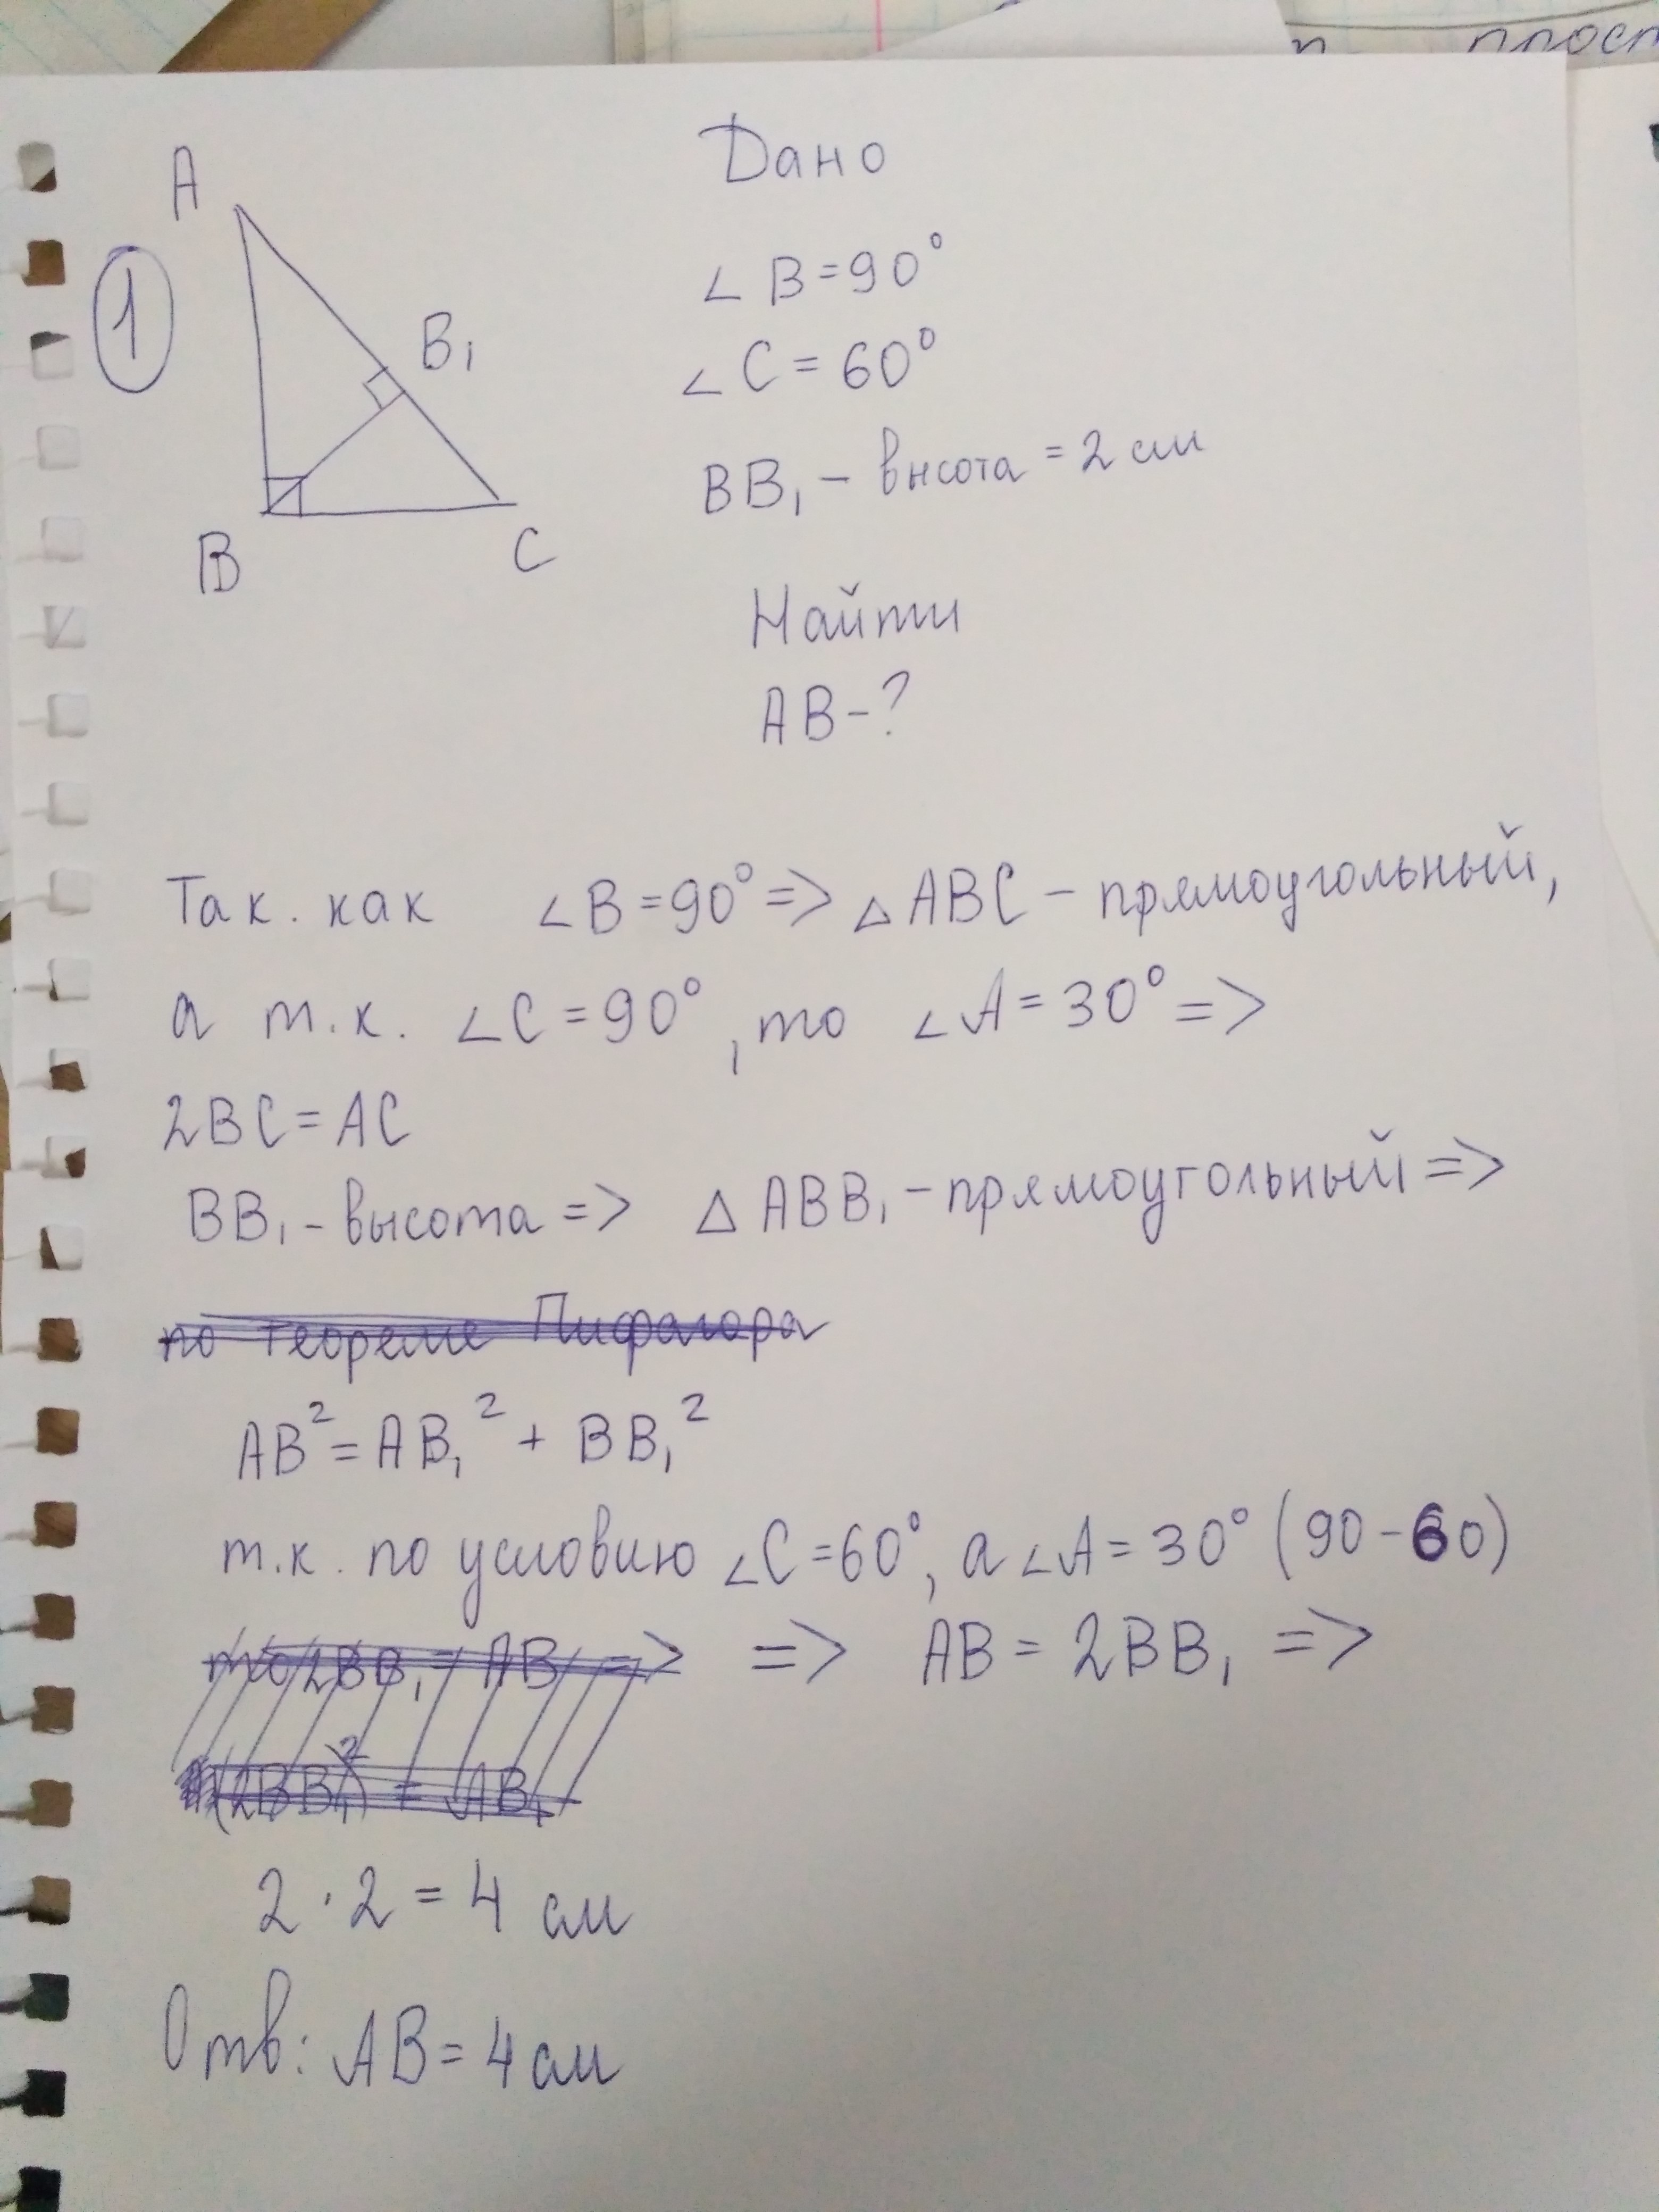 п прост
Дано
A
1
B₁
B
C
∠B=90°
∠C=60°
BB₁ - внсота = 2 см
Найти
AB-?
Так. как ∠B=90° => △ABC - прямоугольный,
а т.к. ∠C=90°, то ∠A=30° =>
2BC=AC
BB₁ - высота => △ABB₁ - прямоугольный =>
по теореме Пифагора
AB²=AB₁² + BB₁²
т.к. по условию ∠C=60°, а ∠A=30° (90-60)
то 2BB₁ = AB => => AB = 2BB₁ =>
(2BB₁)² = AB₁
2·2=4 см
Отв: AB=4см